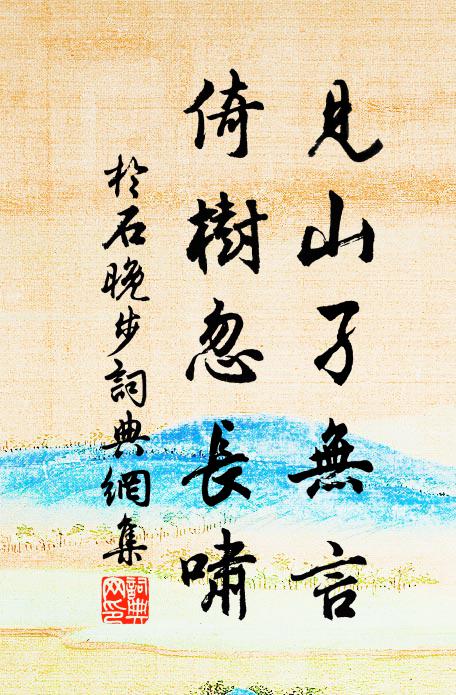 見山了無言
倚樹忽長嘯
於石晚步詞典網集
詞典网印